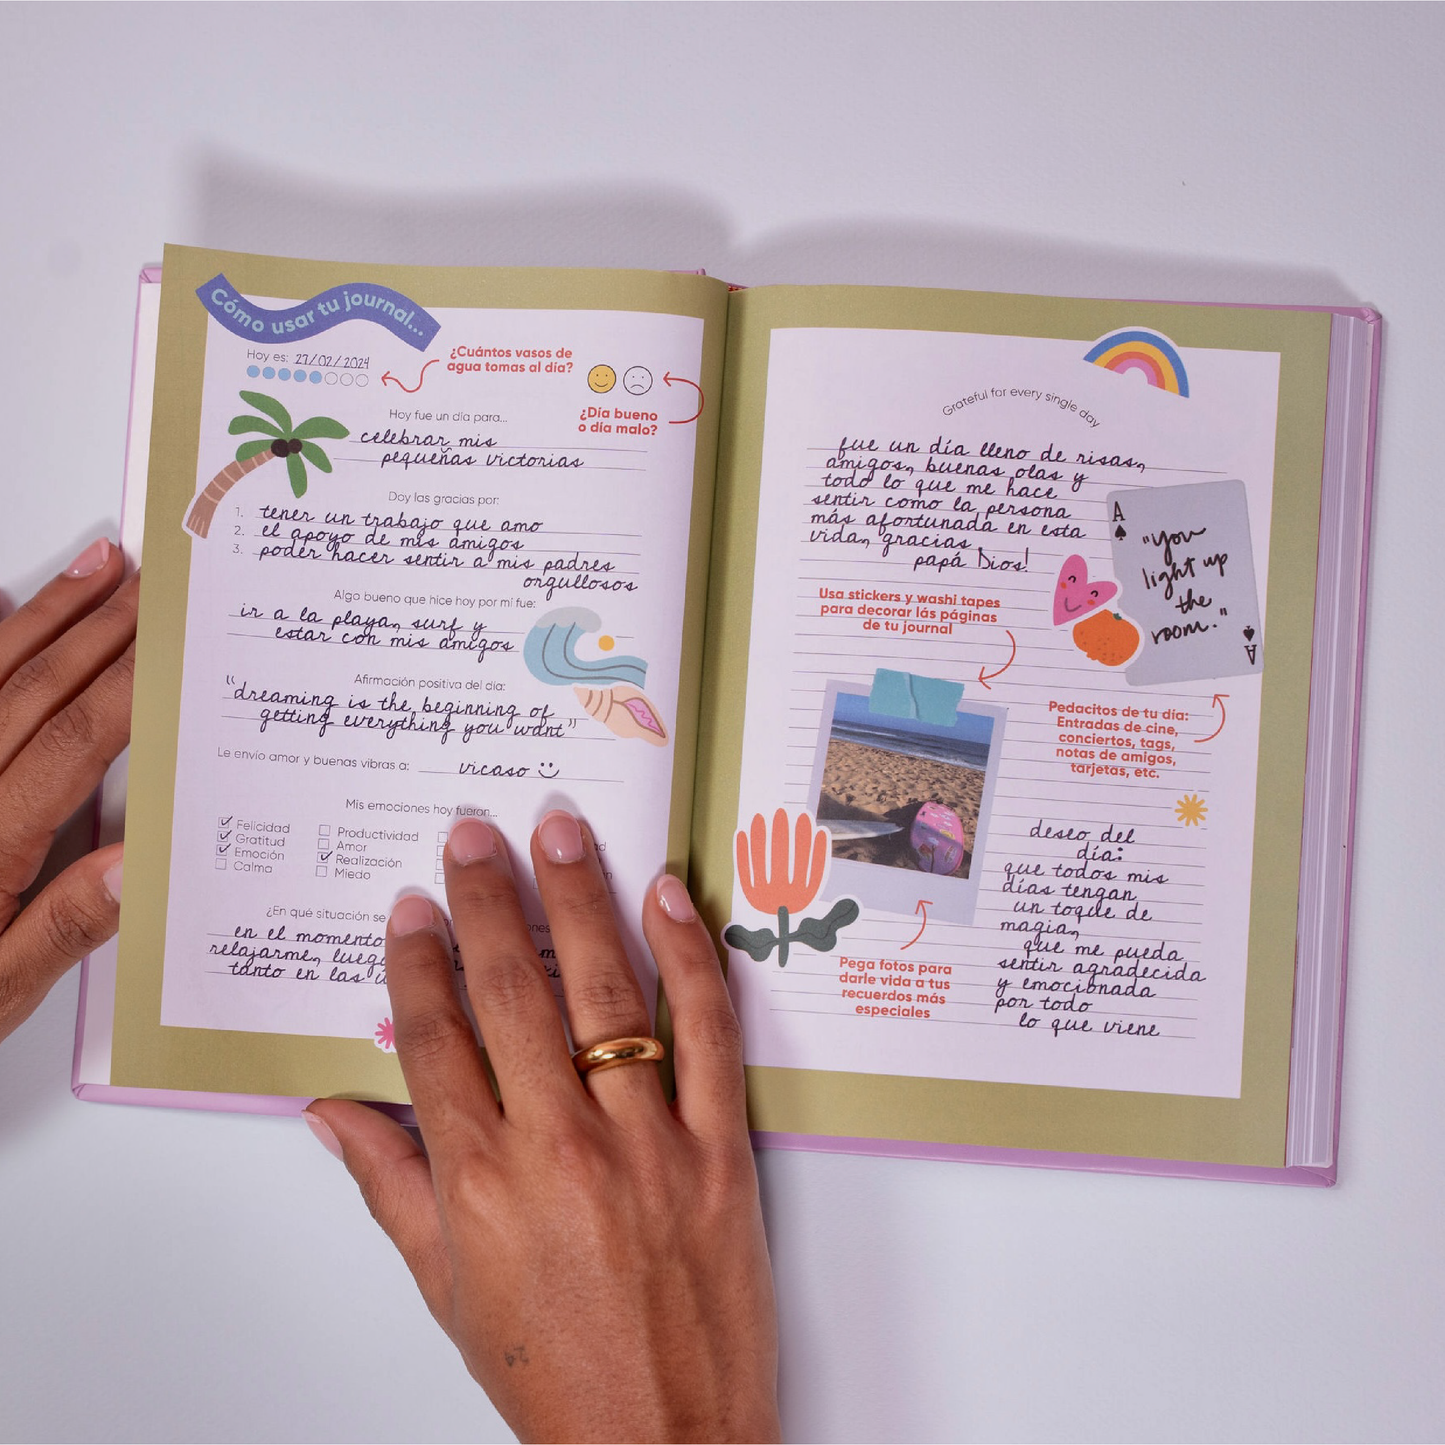 Cómo usar tu journal...
Hoy es: 27/02/2024
¿Cuántos vasos de
agua tomas al día?
¿Día bueno
o día malo?
Hoy fue un día para...
celebrar mis
pequeñas victorias
Doy las gracias por:
1. tener un trabajo que amo
2. el apoyo de mis amigos
3. poder hacer sentir a mis padres
orgullosos
Algo bueno que hice hoy por mi fue:
ir a la playa, surf y
estar con mis amigos
Afirmación positiva del día:
"dreaming is the beginning of
getting everything you want"
Le envío amor y buenas vibras a: vicaso
Mis emociones hoy fueron...
Felicidad
Gratitud
Emoción
Calma
Productividad
Amor
Realización
Miedo
¿En qué situación se
en el momento
relajarme, luego
tanto en las
Grateful for every single day
fue un día lleno de risas,
amigos, buenas olas y
todo lo que me hace
sentir como la persona
más afortunada en esta
vida, gracias
papá Dios!
A
"you
light up
the
room."
A
Usa stickers y washi tapes
para decorar lás páginas
de tu journal
Pedacitos de tu día:
Entradas de cine,
conciertos, tags,
notas de amigos,
tarjetas, etc.
Pega fotos para
darle vida a tus
recuerdos más
especiales
deseo del
día:
que todos mis
días tengan
un toque de
magia,
que me pueda
sentir agradecida
y emocionada
por todo
lo que viene